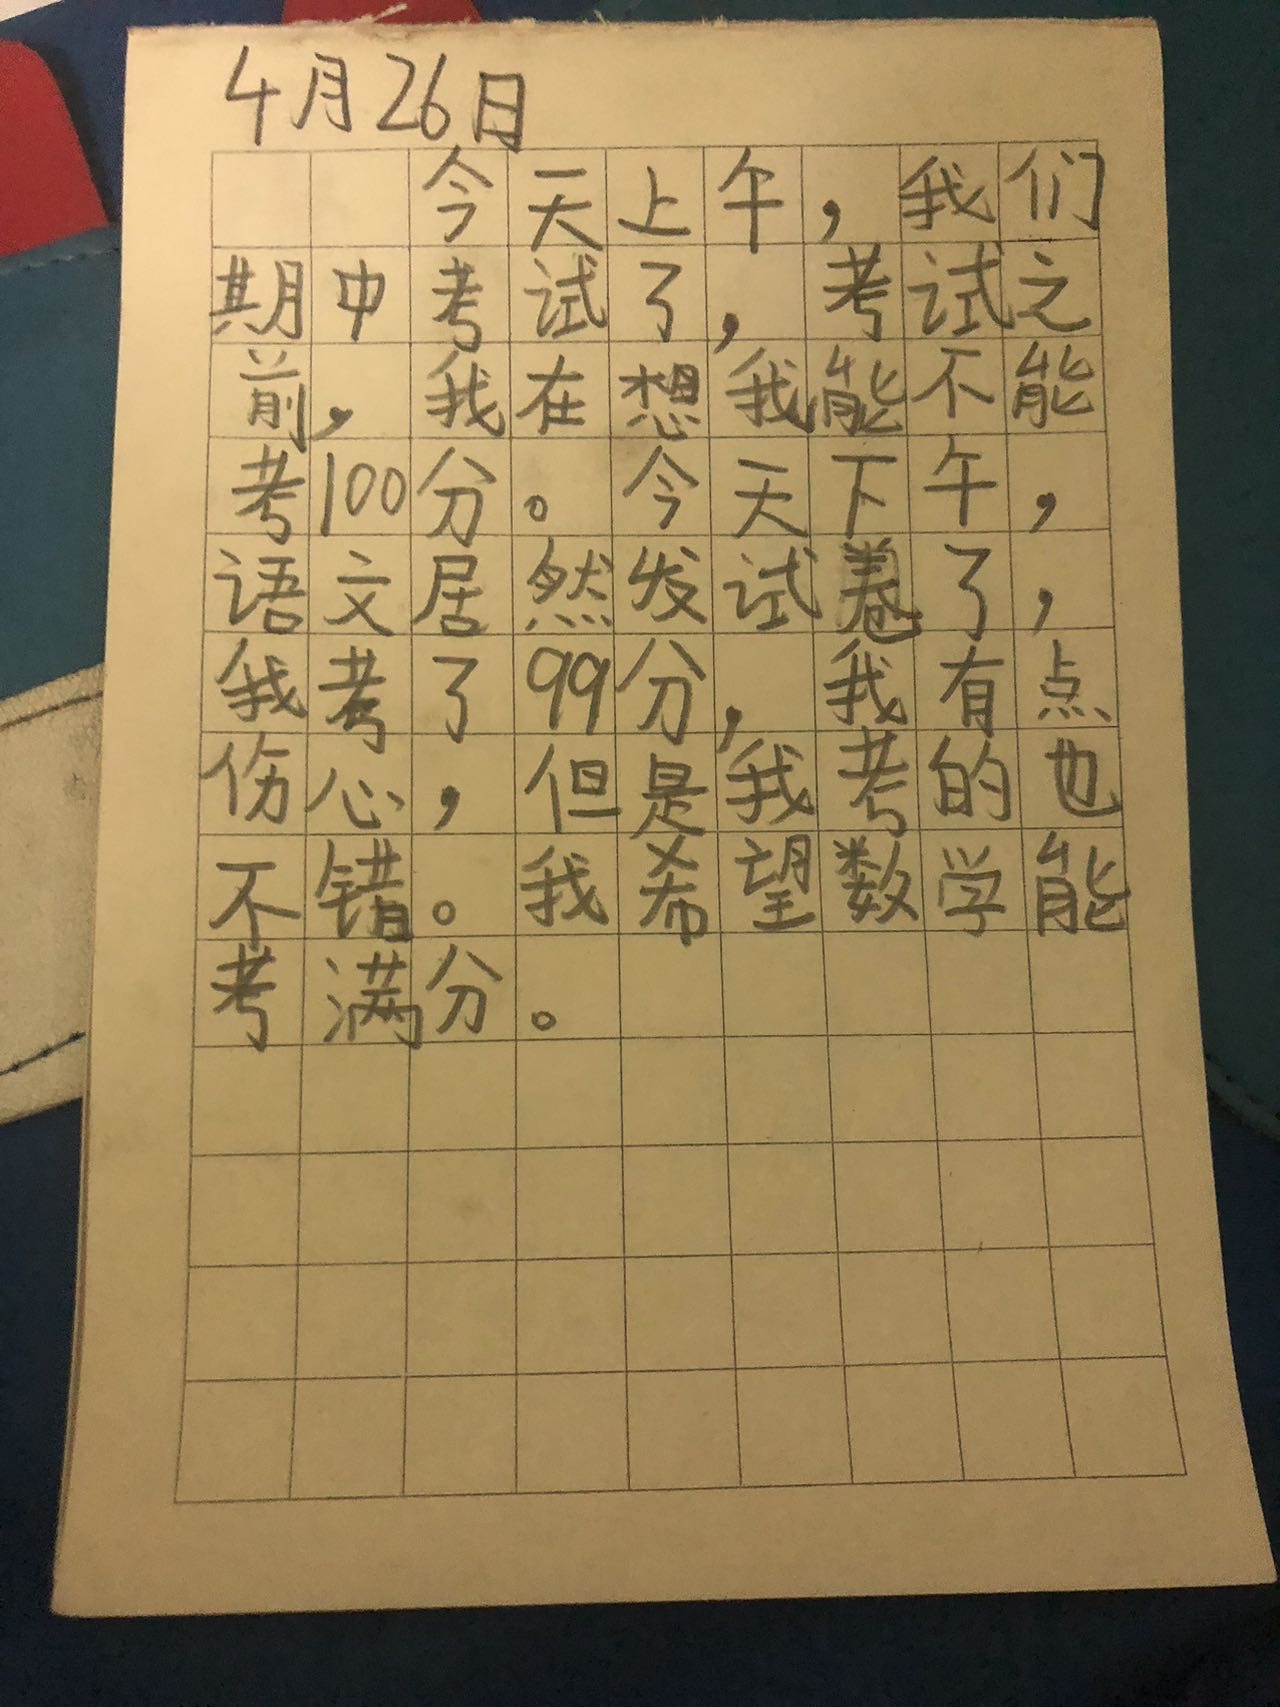 4月26日
今天上午，我们
期中考试了，考试之
前，我在想我能不能
考100分。今天下午，
语文居然发试卷了，
我考了99分，我有点
伤心，但是我考的也
不错。我希望数学能
考满分。